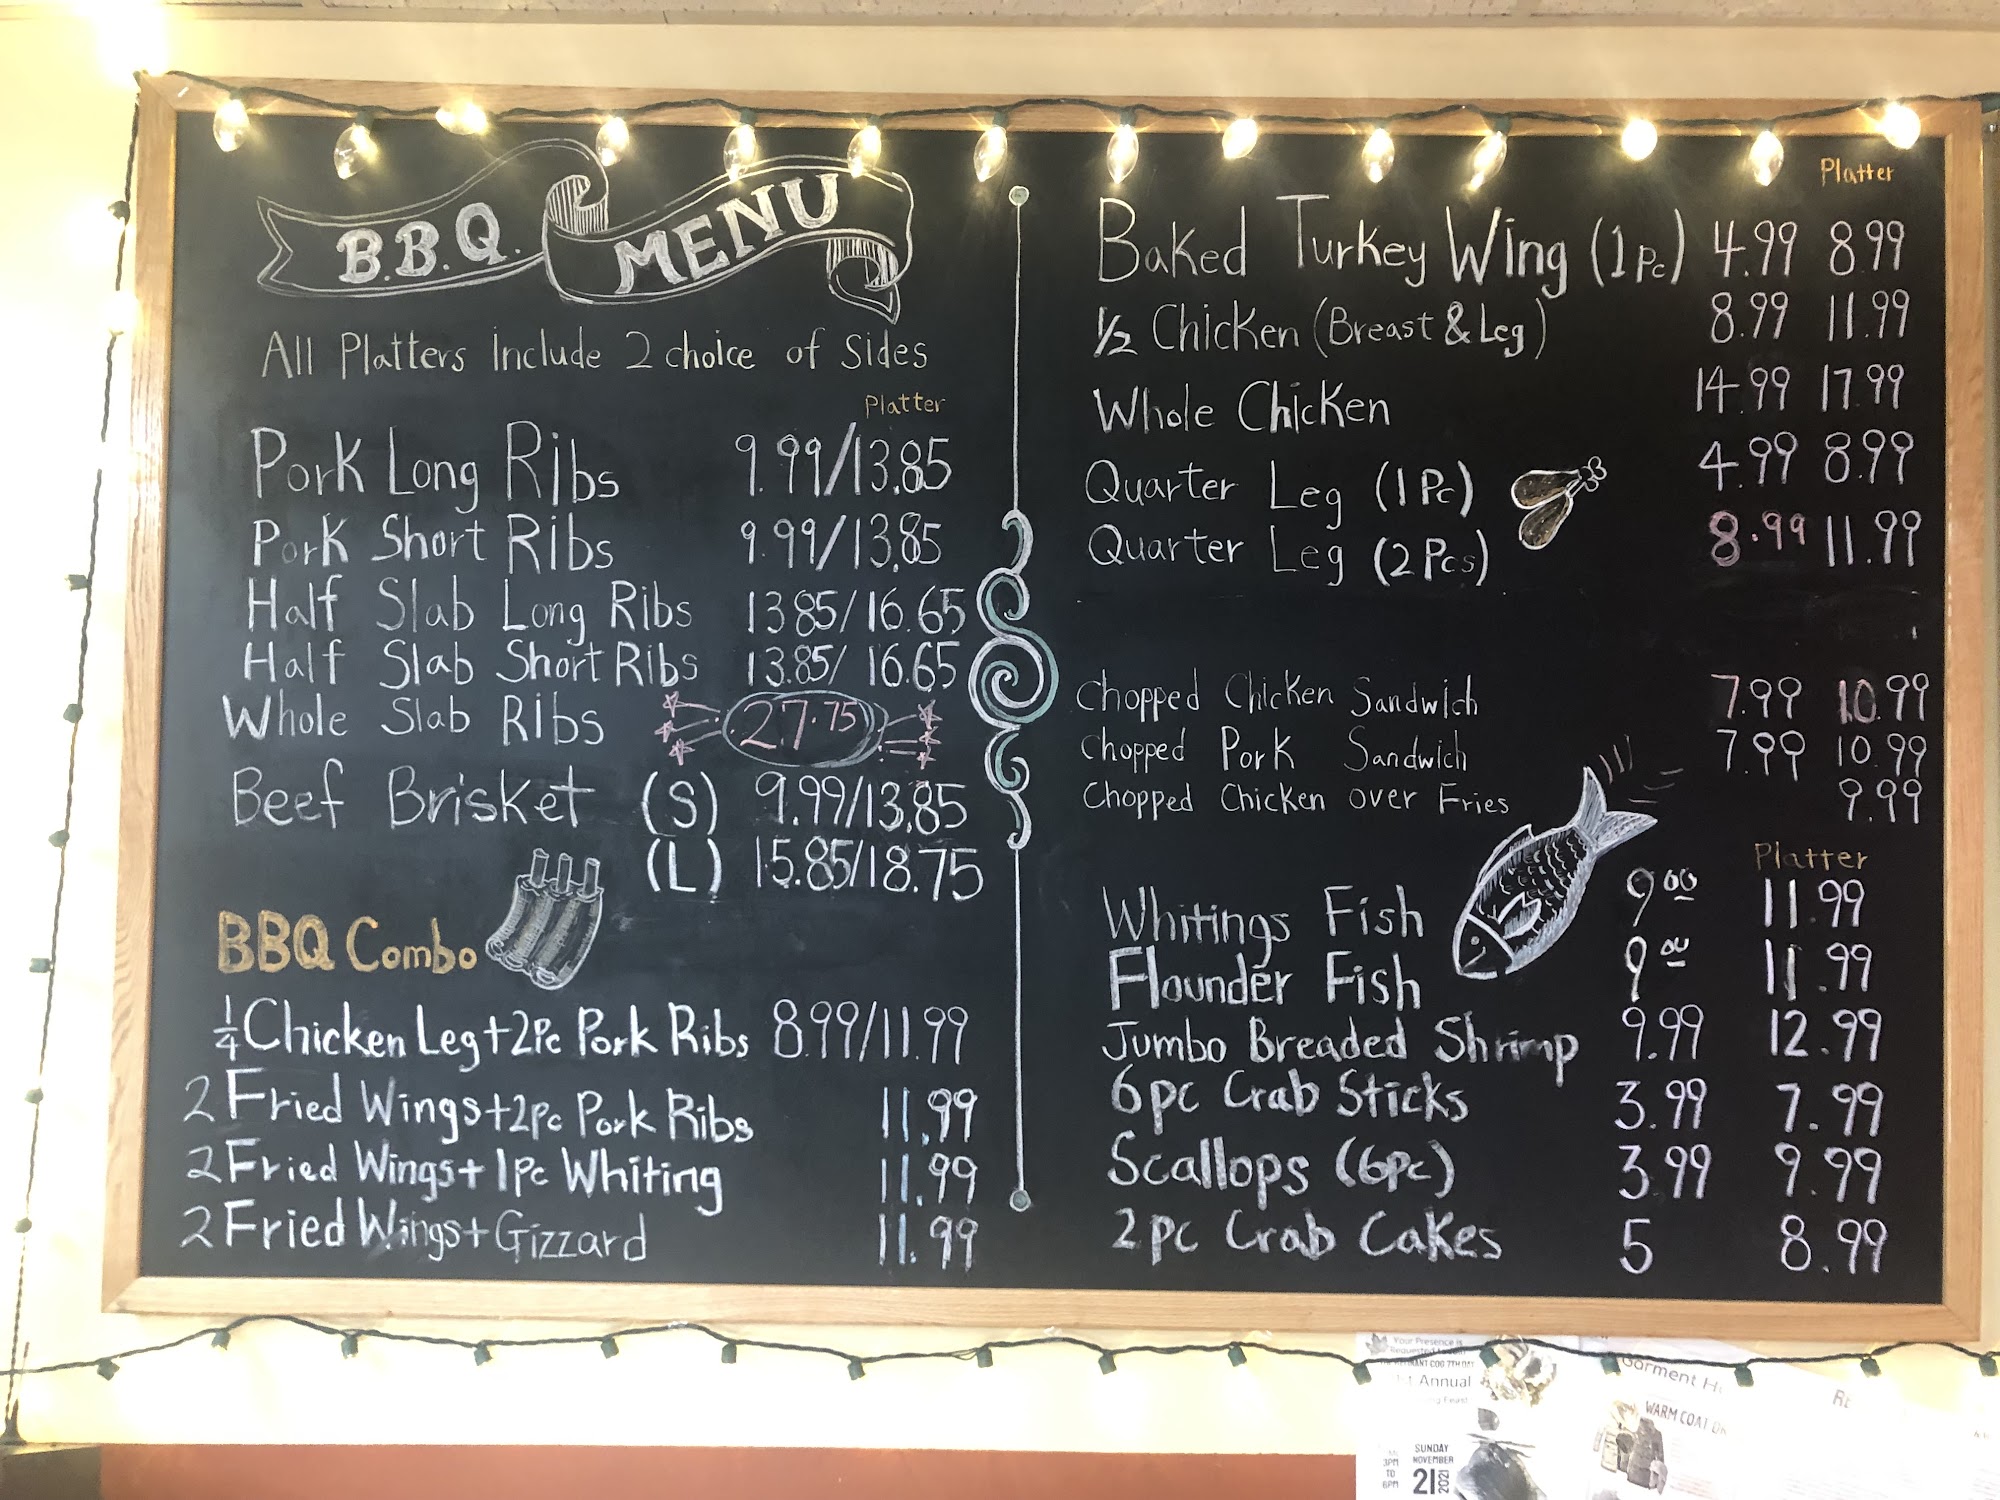 B.B.Q. MENU
All Platters Include 2 choice of Sides
Platter
Pork Long Ribs 9.99/13.85
Pork Short Ribs 9.99/13.85
Half Slab Long Ribs 13.85/16.65
Half Slab Short Ribs 13.85/16.65
Whole Slab Ribs 27.75
Beef Brisket (S) 9.99/13.85
(L) 15.85/18.75
BBQ Combo
1/4 Chicken Leg+2Pc Pork Ribs 8.99/11.99
2 Fried Wings+2pc Pork Ribs 11.99
2 Fried Wings+1pc Whiting 11.99
2 Fried Wings+Gizzard 11.99
Platter
Baked Turkey Wing (1Pc) 4.99 8.99
1/2 Chicken (Breast & Leg) 8.99 11.99
Whole Chicken 14.99 17.99
Quarter Leg (1Pc) 4.99 8.99
Quarter Leg (2Pcs) 8.99 11.99
Chopped Chicken Sandwich 7.99 10.99
Chopped Pork Sandwich 7.99 10.99
Chopped Chicken over Fries 9.99
Platter
Whitings Fish 9.00 11.99
Flounder Fish 9.00 11.99
Jumbo Breaded Shrimp 9.99 12.99
6pc Crab Sticks 3.99 7.99
Scallops (6pc) 3.99 9.99
2pc Crab Cakes 5 8.99
Your Presence is
Requested
COG 7TH
Annual
3PM
TO
6PM
SUNDAY
NOVEMBER
21
2021
Garment
WARM COAT